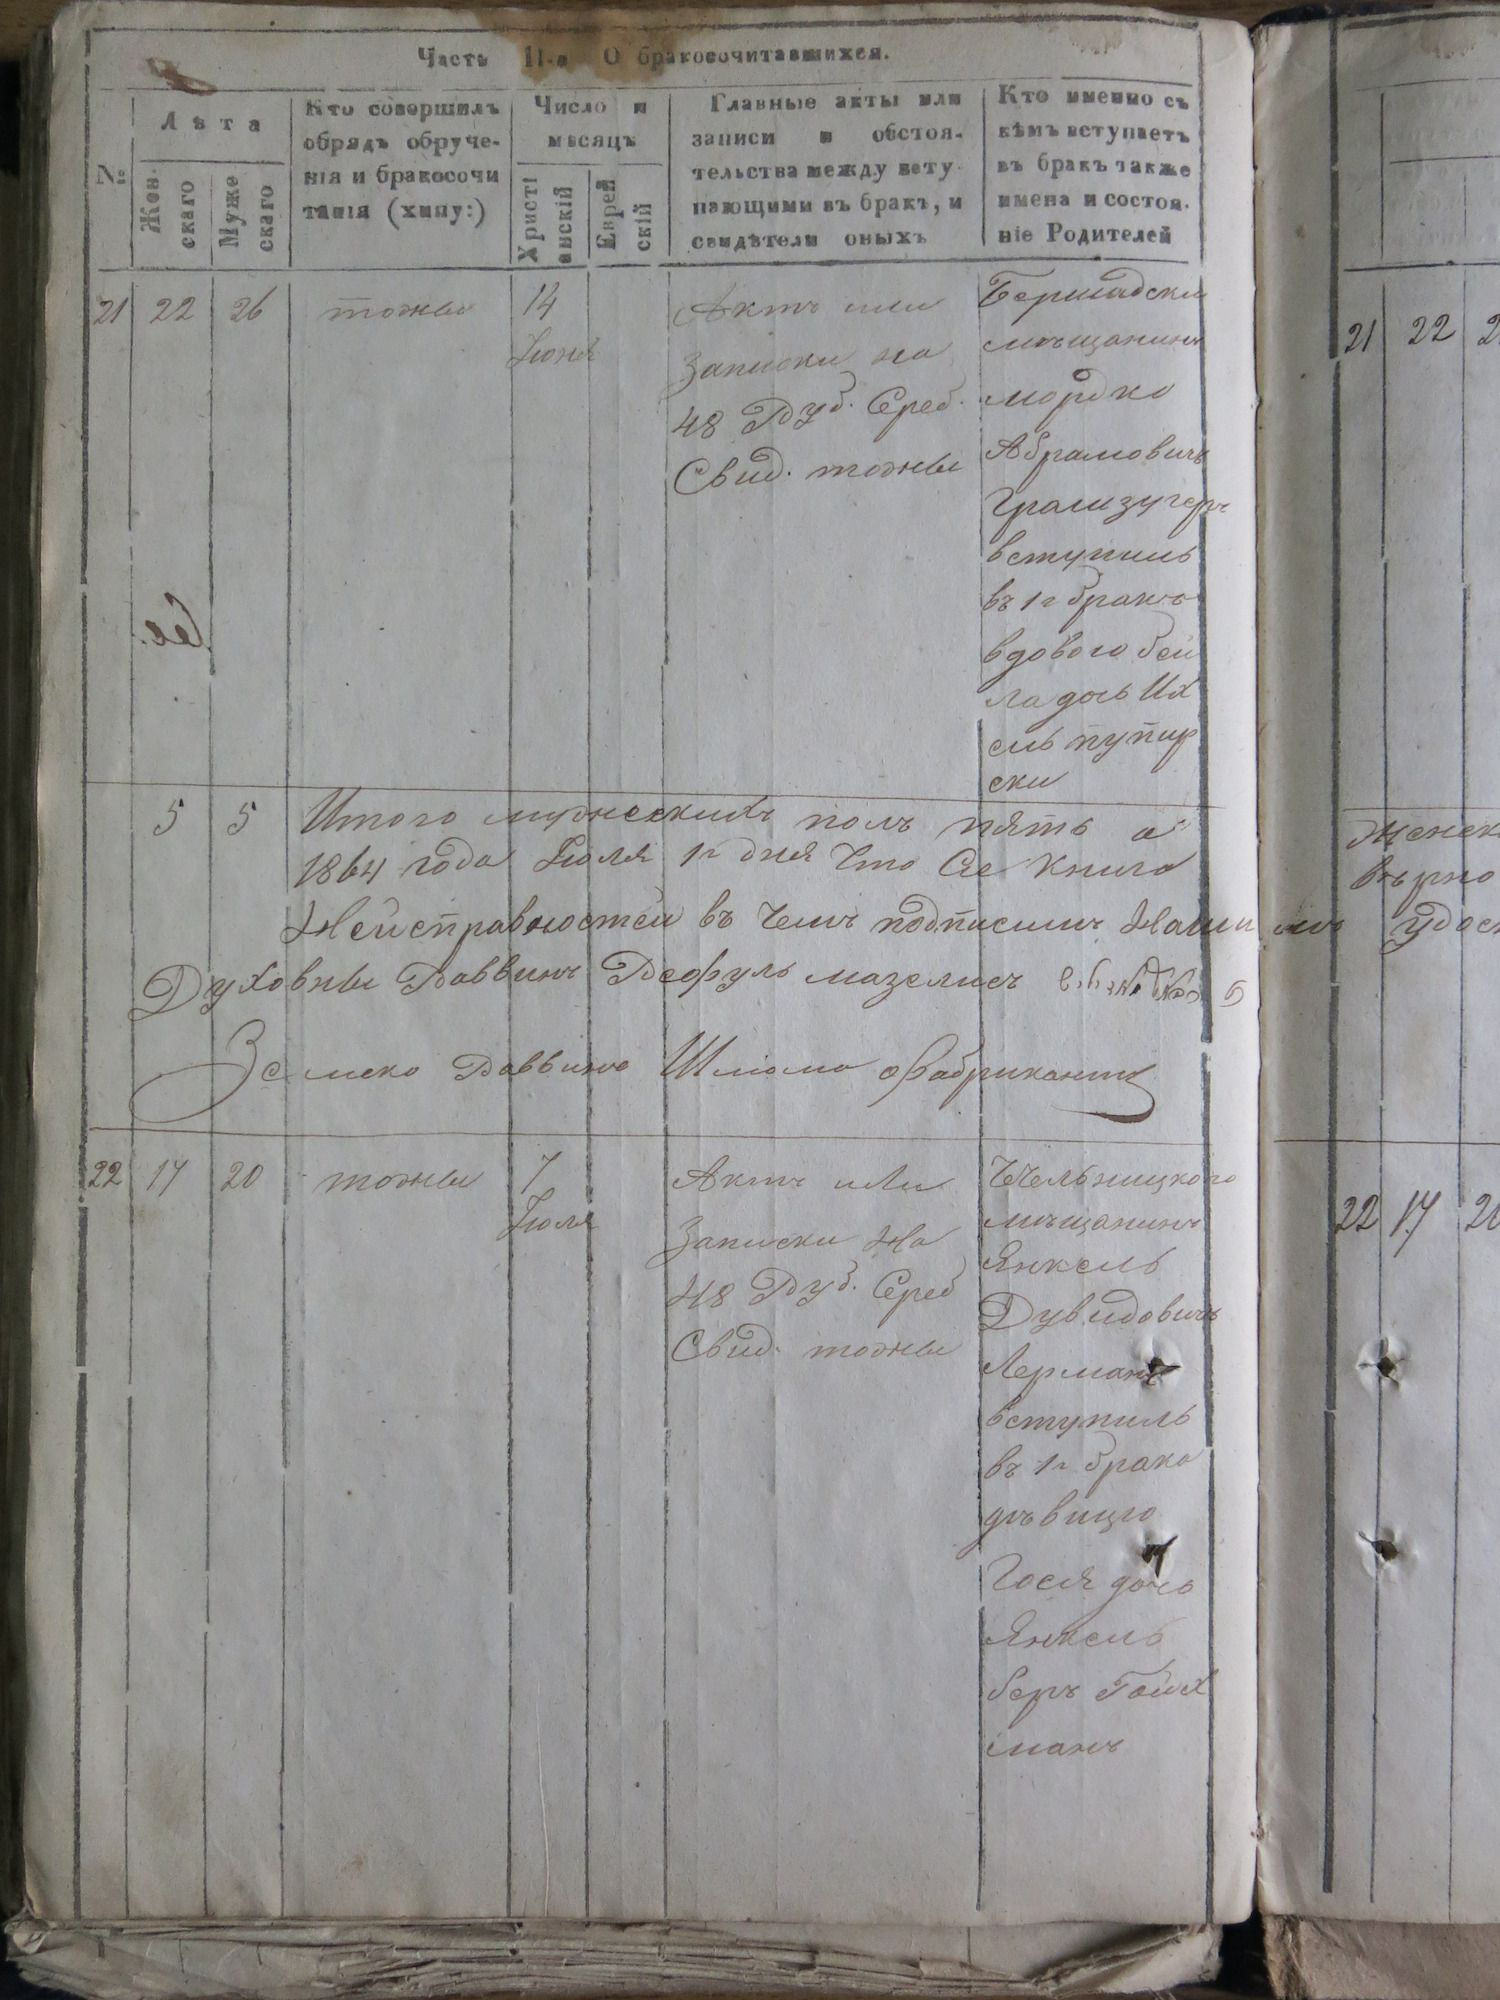 Часть II-я О бракосочитавшихся.
№
Лѣта
Жен-
скаго
Муже
скаго
Кто совершилъ
обрядъ обруче-
нія и бракосочи
танія (хипу:)
Число и
мѣсяцъ
Христі
анскій
Еврей
скій
Главные акты или
записи и обстоя-
тельства между всту
пающими въ бракъ, и
свидѣтели оныхъ
Кто именно съ
кѣмъ вступаетъ
въ бракъ также
имена и состоя-
ніе Родителей
21 22 26 тожны 14
Іюня
Актъ или
Записки на
48 Руб. Сереб.
Свид. тожны
Бершадски
мѣщанинъ
Мордко
Абрамовичъ
вступилъ
въ 1й бракъ
вдового Бей
ла дочь
5 5 Итого мужескихъ полъ пять а
1864 года Іюля 1го дня Что Сіе Книга
Нейсправностей въ чемъ подписимъ Наши
Духовны Раввинъ Рефуль Мазелисъ
Раввинъ Шлома Фабрикантъ
22 17 20 тожны 7
Іюля
Актъ или
Записки На
48 Руб. Сереб
Свид. тожны
мѣщанинъ
Янкель
Дувидовичъ
Лерманъ
вступилъ
въ 1й брако
дѣвицю
Гося дочь
Янкель
беръ Гойх
манъ
21 22
Женск
вѣрно
удос
22 17 20